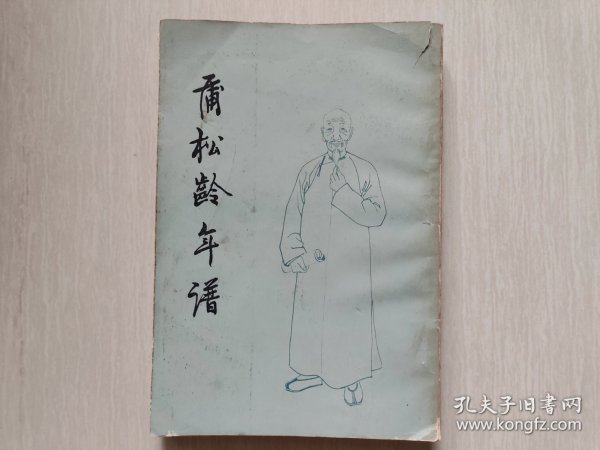 蒲松齡年谱
孔夫子旧書网
www.kongfz.com